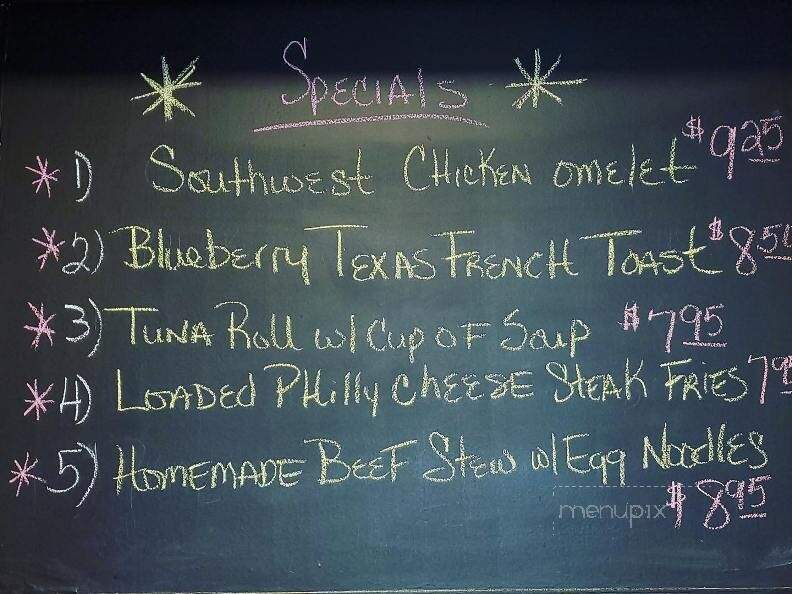 * Specials *
* 1) Southwest Chicken omelet $9.25
* 2) Blueberry Texas French Toast $8.50
* 3) Tuna Roll w/ Cup of Soup $7.95
* 4) Loaded Philly Cheese Steak Fries 79
* 5) Homemade Beef Stew w/ Egg Noodles
$8.95
menupix